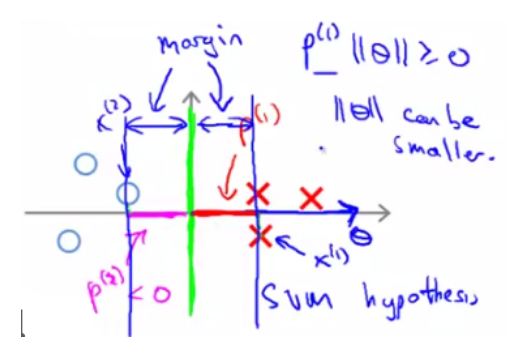 margin
p⁽¹⁾ ||θ|| ≥ 0
x⁽²⁾
p⁽¹⁾
||θ|| can be
smaller.
θ
x⁽¹⁾
p⁽²⁾ < 0
SVM hypothesis